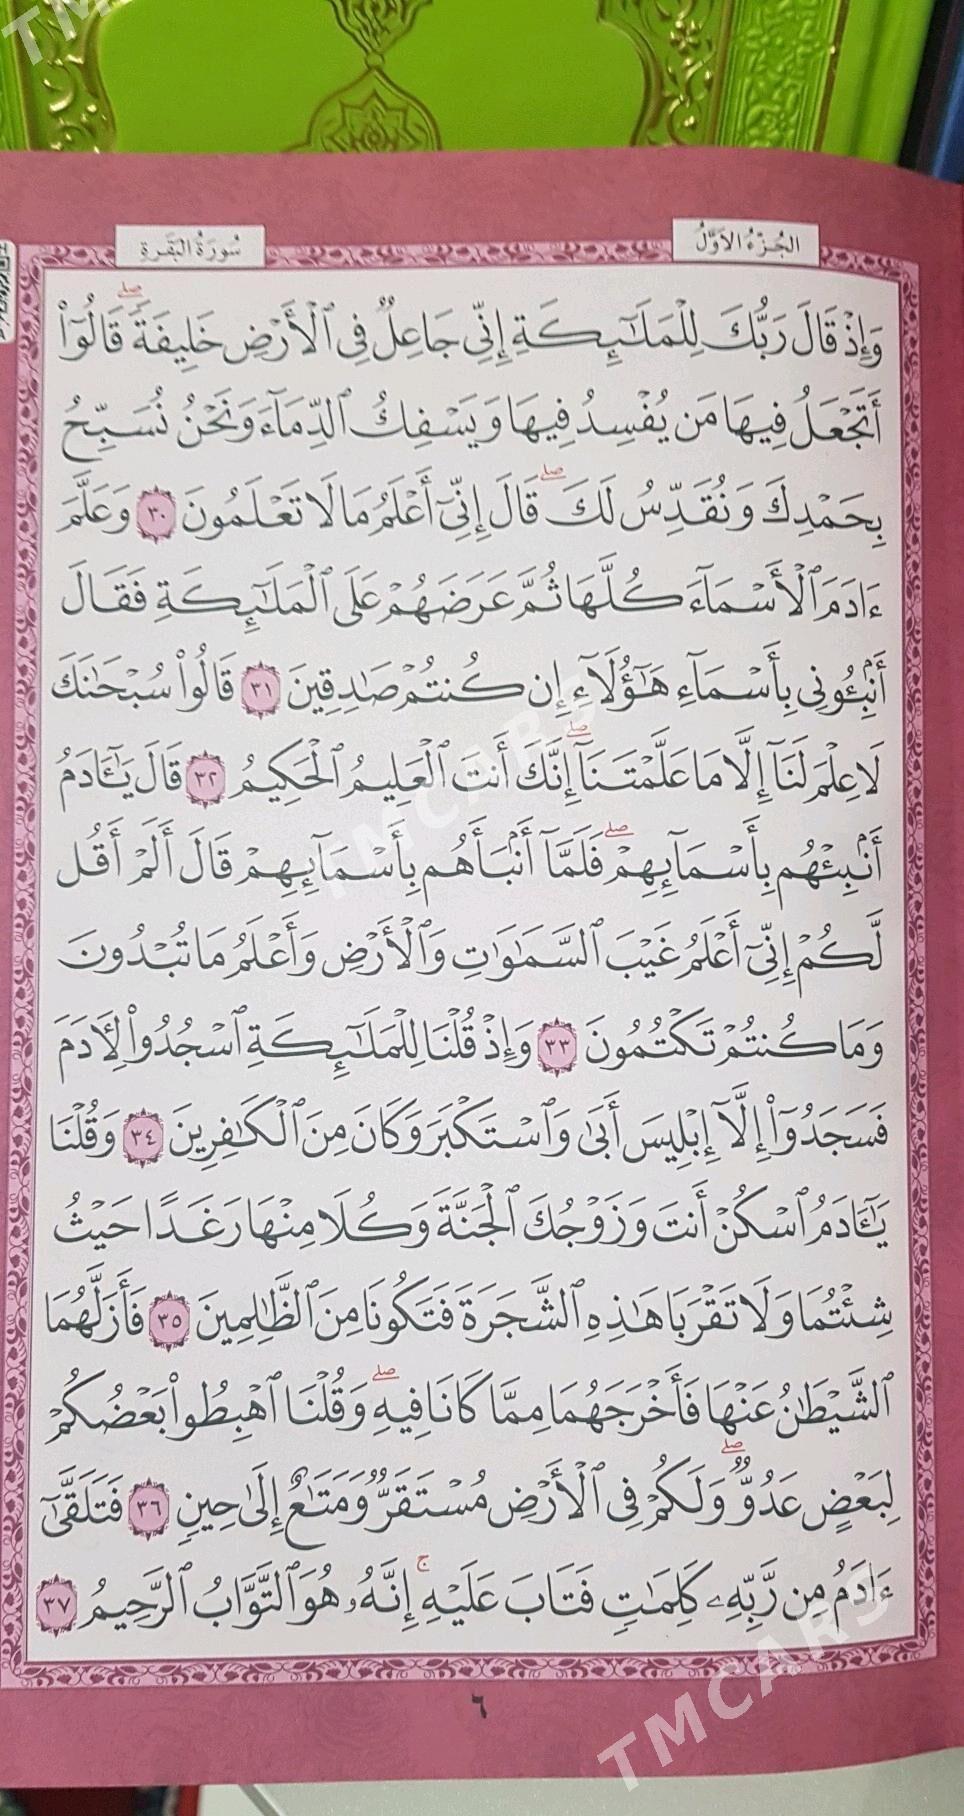 TMCARS
الجُزْءُ الأَوَّلُ
سُورَةُ البَقَرَةِ
وَإِذْ قَالَ رَبُّكَ لِلْمَلَٰٓئِكَةِ إِنِّي جَاعِلٌ فِي ٱلْأَرْضِ خَلِيفَةًۖ قَالُوٓا۟
أَتَجْعَلُ فِيهَا مَن يُفْسِدُ فِيهَا وَيَسْفِكُ ٱلدِّمَآءَ وَنَحْنُ نُسَبِّحُ
بِحَمْدِكَ وَنُقَدِّسُ لَكَۖ قَالَ إِنِّيٓ أَعْلَمُ مَا لَا تَعْلَمُونَ ٣٠ وَعَلَّمَ
ءَادَمَ ٱلْأَسْمَآءَ كُلَّهَا ثُمَّ عَرَضَهُمْ عَلَى ٱلْمَلَٰٓئِكَةِ فَقَالَ
أَنۢبِـُٔونِي بِأَسْمَآءِ هَٰٓؤُلَآءِ إِن كُنتُمْ صَٰدِقِينَ ٣١ قَالُوا۟ سُبْحَٰنَكَ
لَا عِلْمَ لَنَآ إِلَّا مَا عَلَّمْتَنَآۖ إِنَّكَ أَنتَ ٱلْعَلِيمُ ٱلْحَكِيمُ ٣٢ قَالَ يَٰٓـَٔادَمُ
أَنۢبِئْهُم بِأَسْمَآئِهِمْۖ فَلَمَّآ أَنۢبَأَهُم بِأَسْمَآئِهِمْ قَالَ أَلَمْ أَقُل
لَّكُمْ إِنِّيٓ أَعْلَمُ غَيْبَ ٱلسَّمَٰوَٰتِ وَٱلْأَرْضِ وَأَعْلَمُ مَا تُبْدُونَ
وَمَا كُنتُمْ تَكْتُمُونَ ٣٣ وَإِذْ قُلْنَا لِلْمَلَٰٓئِكَةِ ٱسْجُدُوا۟ لِـَٔادَمَ
فَسَجَدُوٓا۟ إِلَّآ إِبْلِيسَ أَبَىٰ وَٱسْتَكْبَرَ وَكَانَ مِنَ ٱلْكَٰفِرِينَ ٣٤ وَقُلْنَا
يَٰٓـَٔادَمُ ٱسْكُنْ أَنتَ وَزَوْجُكَ ٱلْجَنَّةَ وَكُلَا مِنْهَا رَغَدًا حَيْثُ
شِئْتُمَا وَلَا تَقْرَبَا هَٰذِهِ ٱلشَّجَرَةَ فَتَكُونَا مِنَ ٱلظَّٰلِمِينَ ٣٥ فَأَزَلَّهُمَا
ٱلشَّيْطَٰنُ عَنْهَا فَأَخْرَجَهُمَا مِمَّا كَانَا فِيهِۖ وَقُلْنَا ٱهْبِطُوا۟ بَعْضُكُمْ
لِبَعْضٍ عَدُوٌّۖ وَلَكُمْ فِي ٱلْأَرْضِ مُسْتَقَرٌّ وَمَتَٰعٌ إِلَىٰ حِينٍ ٣٦ فَتَلَقَّىٰٓ
ءَادَمُ مِن رَّبِّهِۦ كَلِمَٰتٍ فَتَابَ عَلَيْهِۚ إِنَّهُۥ هُوَ ٱلتَّوَّابُ ٱلرَّحِيمُ ٣٧
٦
TMCARS